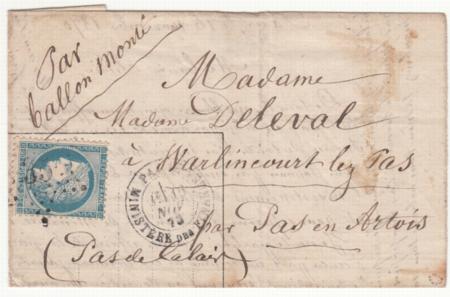 Par
ballon monté
Madame
Madame Deleval
à Warlincourt lez Pas
par Pas en Artois
(Pas de Calais)
MINISTÈRE DES
NOV